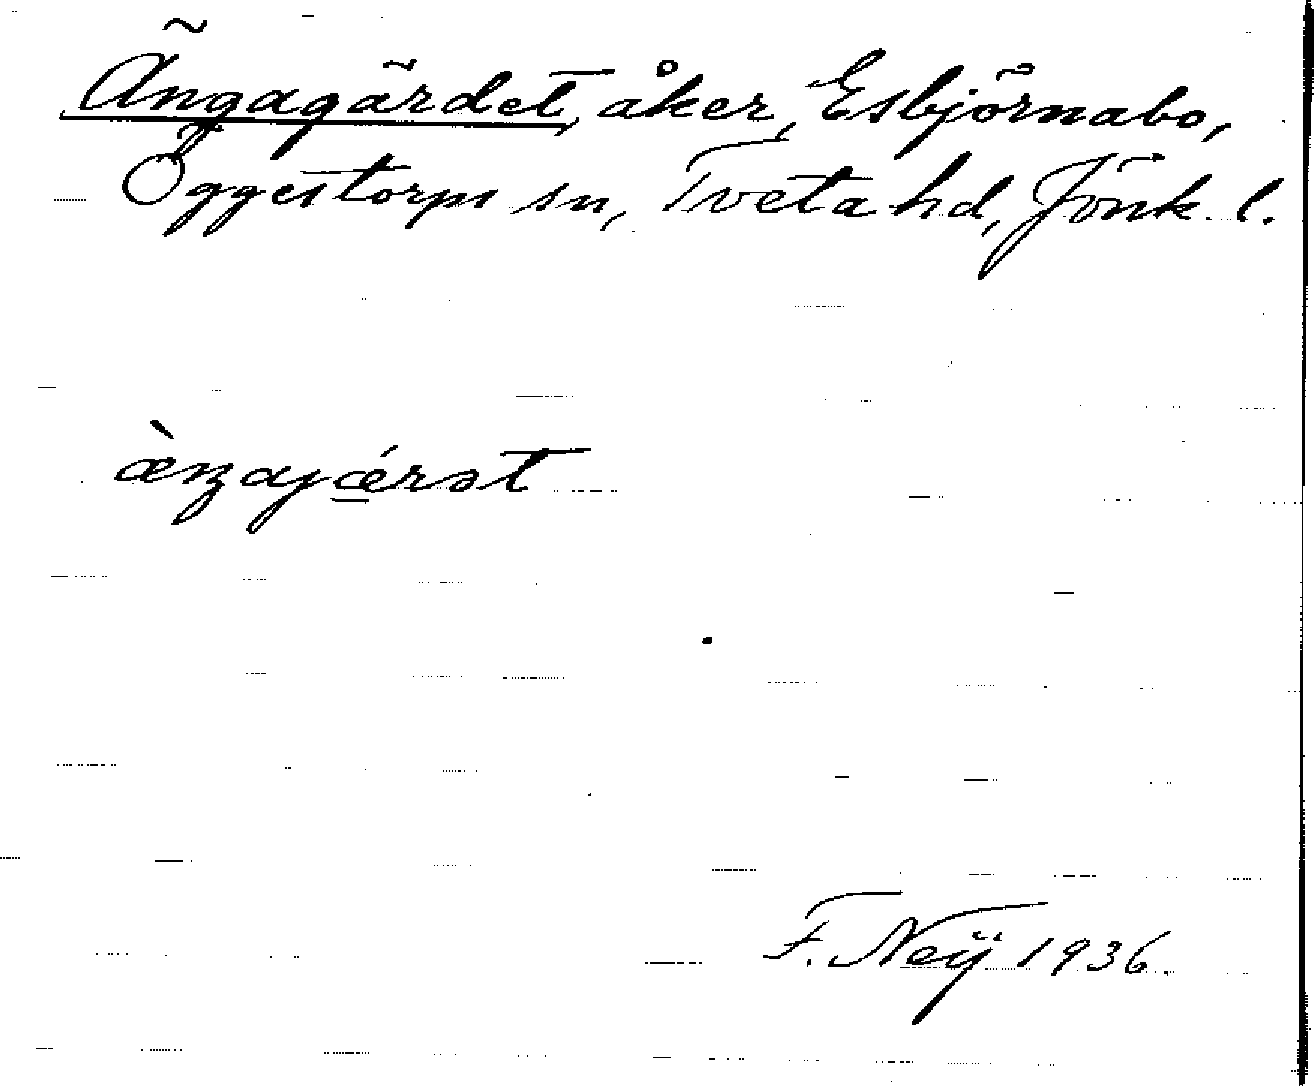 Ängagärdet, åker, Esbjörnabo,
Öggestorps sn, Tveta hd, Jönk. l.
æ̀nʒajǽrət
F. Neÿ 1936.